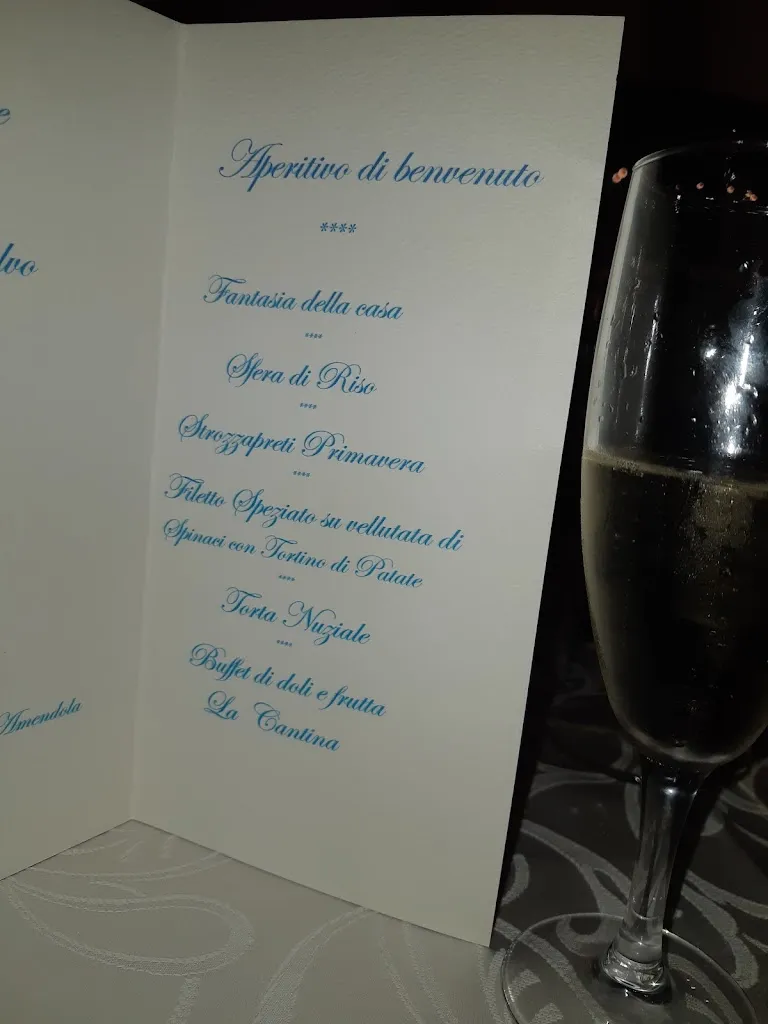 Aperitivo di benvenuto
****
Fantasia della casa
****
Sfera di Riso
****
Strozzapreti Primavera
****
Filetto Speziato su vellutata di
Spinaci con Tortino di Patate
****
Torta Nuziale
****
Buffet di doli e frutta
La Cantina
Amendola